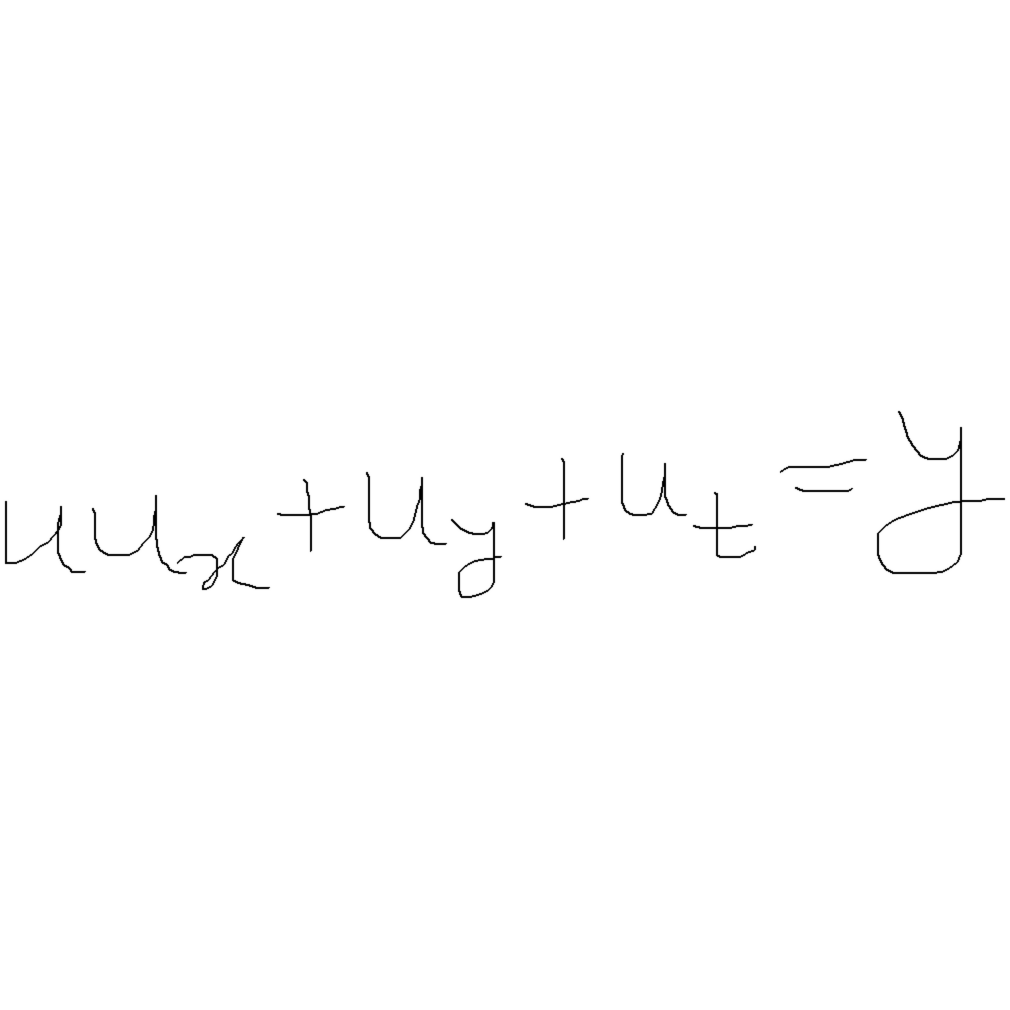 uuₓ + u_y + u_t = y